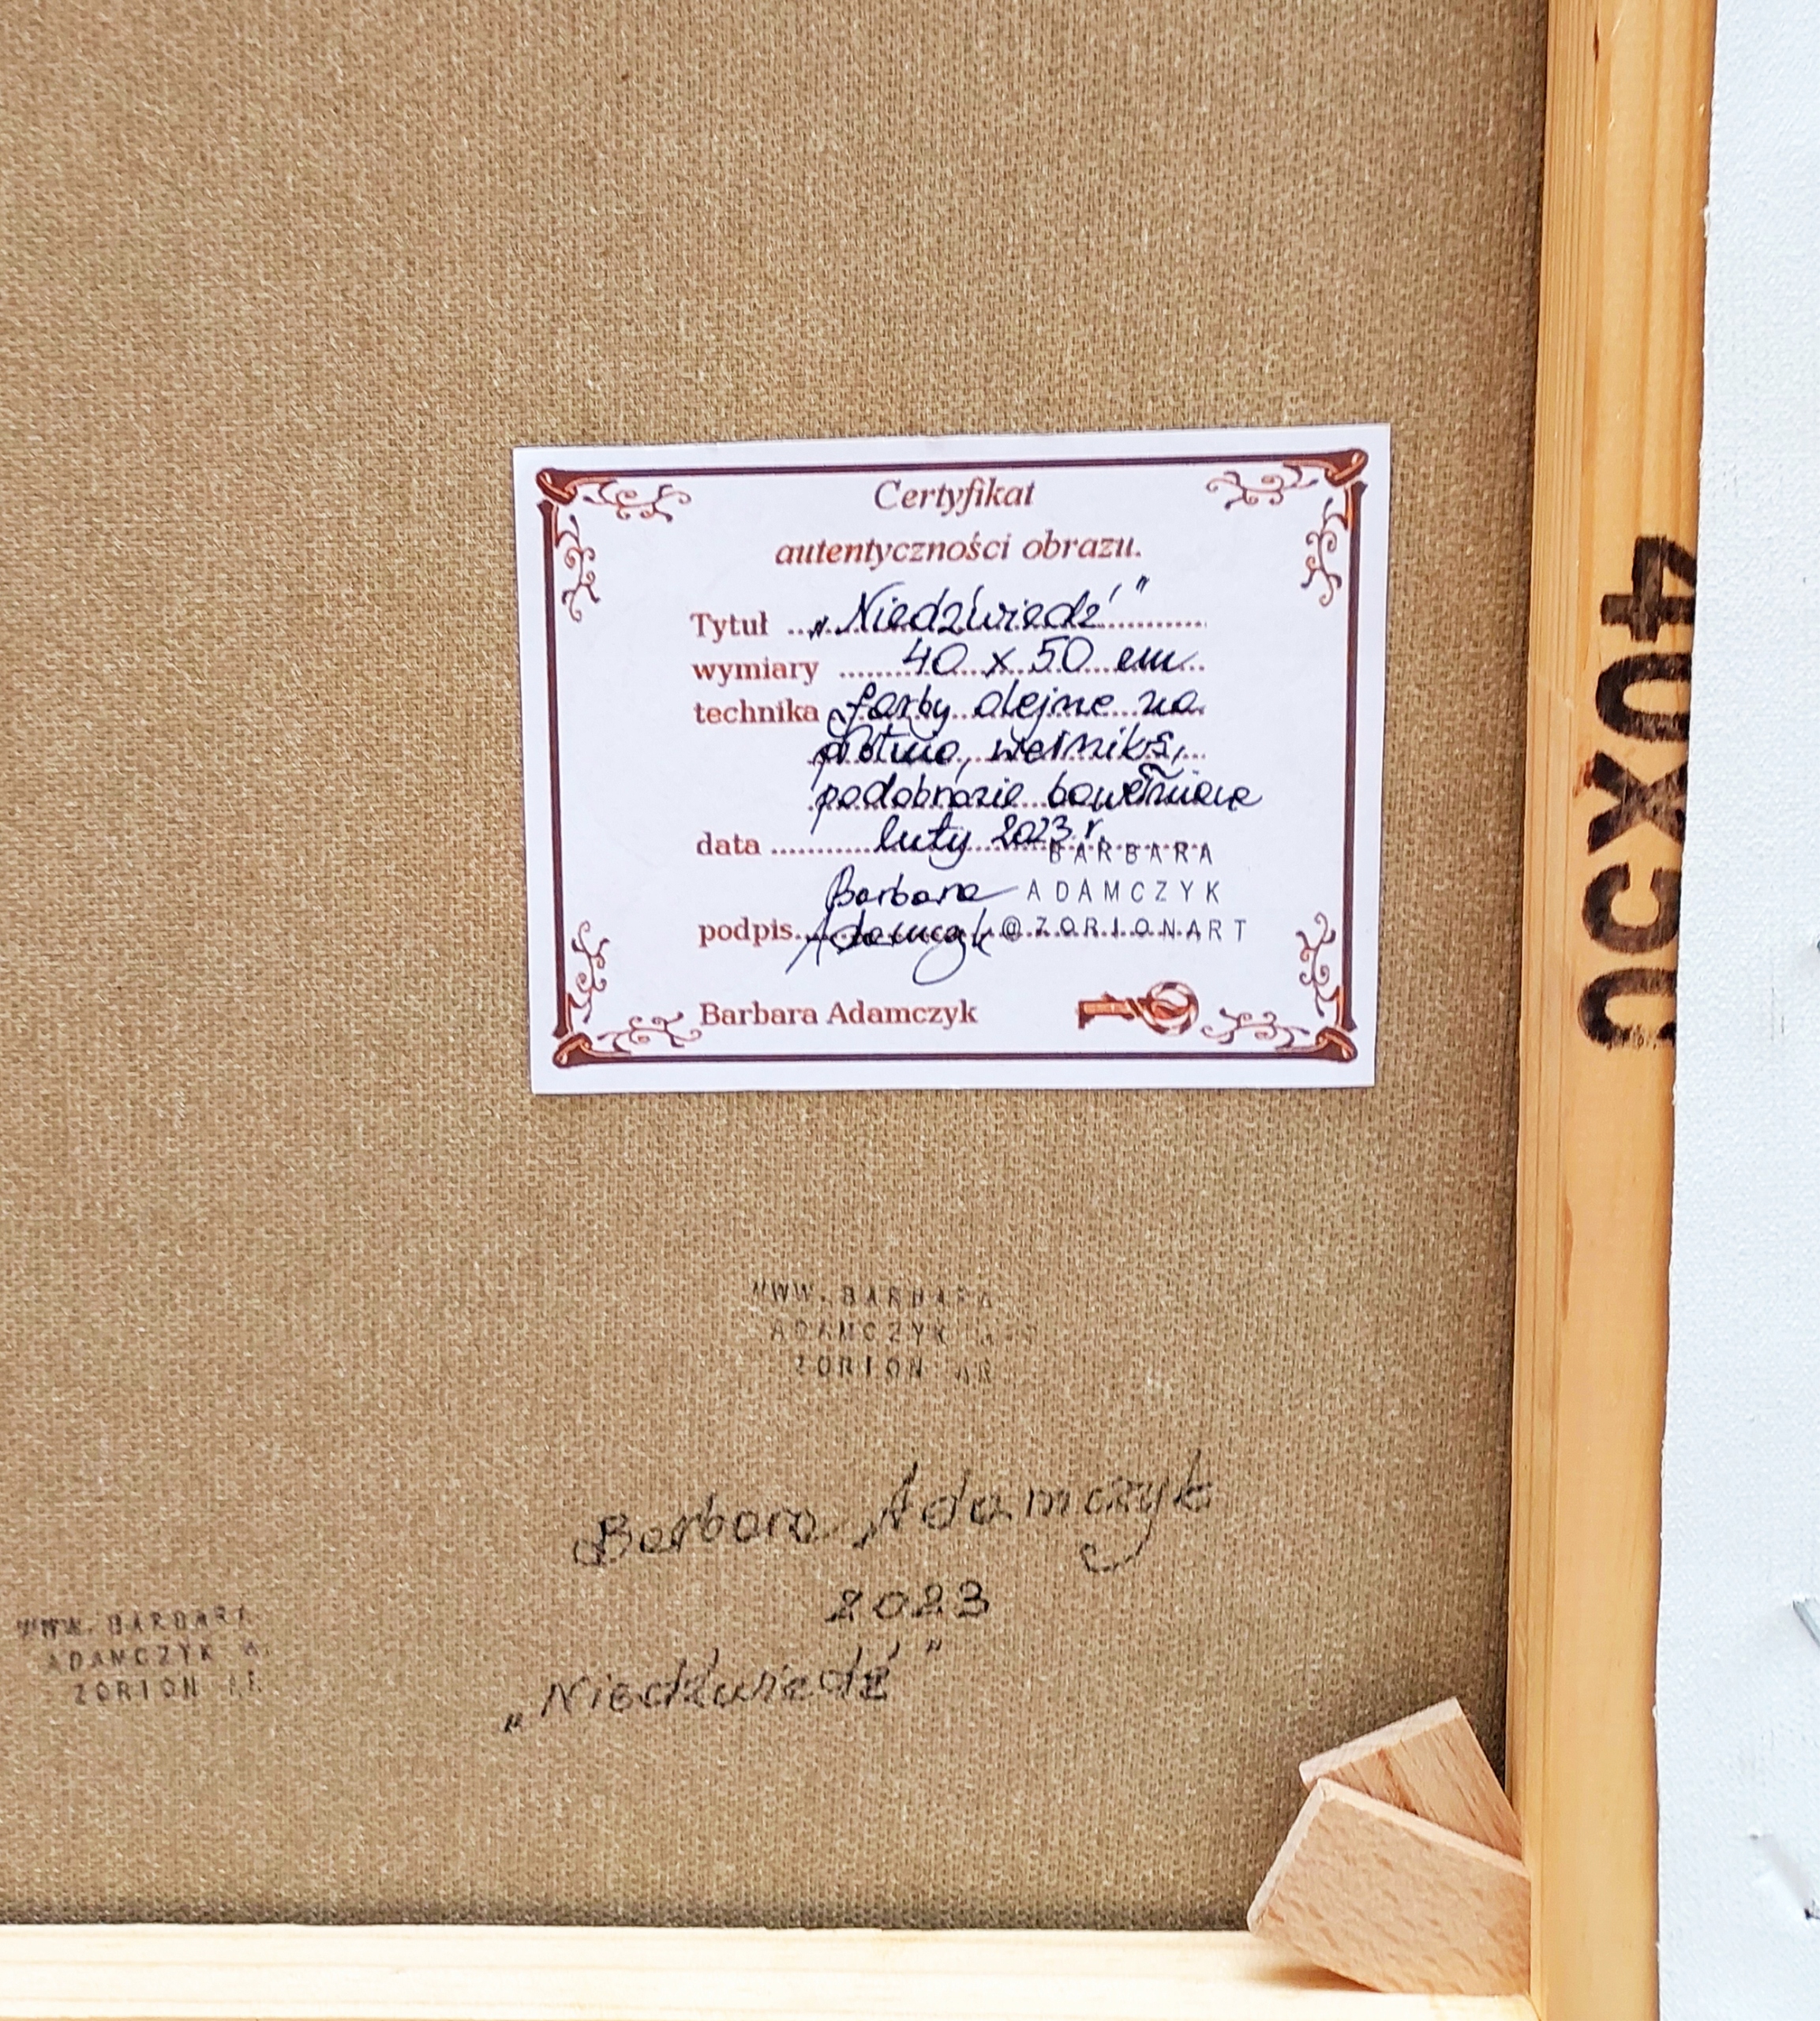 Certyfikat
autentyczności obrazu.
Tytuł „Niedźwiedź”
wymiary 40 x 50 cm
technika farby olejne na
płótno, werniks,
podobrazie bawełniane
data luty 2023 r.
BARBARA
Barbara ADAMCZYK
podpis Adamczyk @ZORIONART
Barbara Adamczyk
40x50
WWW.BARBARA
ADAMCZYK
ZORION
Barbara Adamczyk
2023
„Niedźwiedź”
WWW.BARBARA
ADAMCZYK
ZORION